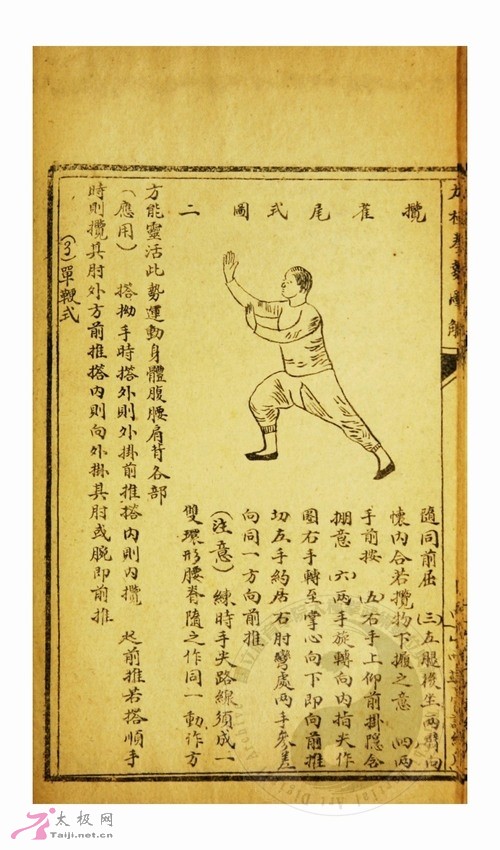 攬雀尾式圖 二
隨同前屈 (三)左腿後坐兩臂向
懷內合若攬物下搬之意 四兩
手前按 (五)右手上仰前掛隱含
掤意 (六)兩手旋轉向內指尖作
圈右手轉至掌心向下即向前推
切左手約居右肘彎處兩手參差
向同一方向前推
(注意) 練時手尖路線須成一
雙環形腰脊隨之作同一動作方
方能靈活此勢運動身體腹腰肩背各部
(應用) 搭拗手時搭外則外掛前推搭內則內攬 起前推若搭順手
時則攬其肘外方前推搭內則向外掛其肘或腕即前推
(3)單鞭式
太极网
Taiji.net.cn